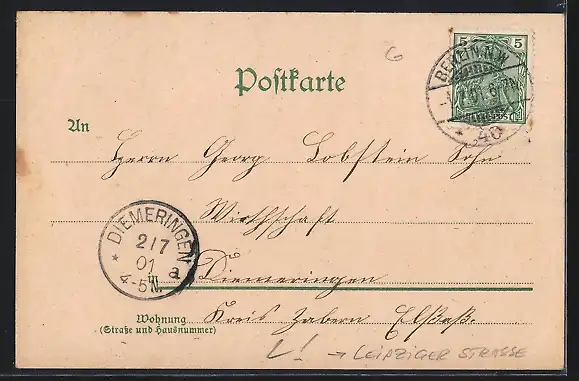 6
5 5
BERLIN N.W.
6-7N.
40
Postkarte
An
Herrn Georg Lobstein Sohn
Wirthschaft
DIEMERINGEN
2/7
01 a
4-5N.
in Diemeringen
Kreis Zabern Elsaß.
Wohnung
(Straße und Hausnummer)
L! → LEIPZIGER STRASSE